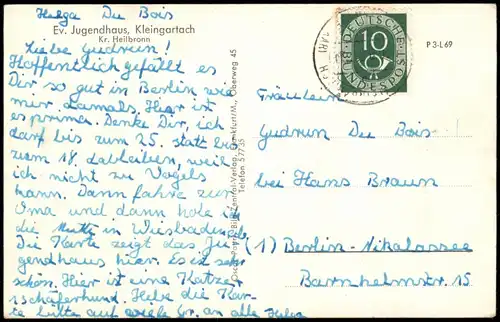 Helga Du Bois
Ev. Jugendhaus, Kleingartach
Kr. Heilbronn
Liebe Gudrun!
Hoffentlich gefällt es
Dir so gut in Berlin wie
mir damals. Hier ist
es prima. Denke Dir, ich
darf bis zum 25. statt bis
zum 18. dableiben, weil
ich nicht zu Vogels
kann. Dann fahre zur
Oma und dann hole ich
die Mutti in Wiesbaden
Die Karte zeigt das Ju-
gendhaus hier. Es ist sehr
schön. Hier ist eine Katze +
1 Schäferhund. Hebe die Kar-
te bitte auf viele Gr. an alle Helga
Zentral-Verlag, Frankfurt/M., Oberweg 45
Telefon 57735
DEUTSCHE
BUNDESPOST
10
P 3-L 69
Fräulein
Gudrun Du Bois
bei Hans Braun
(1) Berlin-Nikolassee
Barnhelmstr. 15